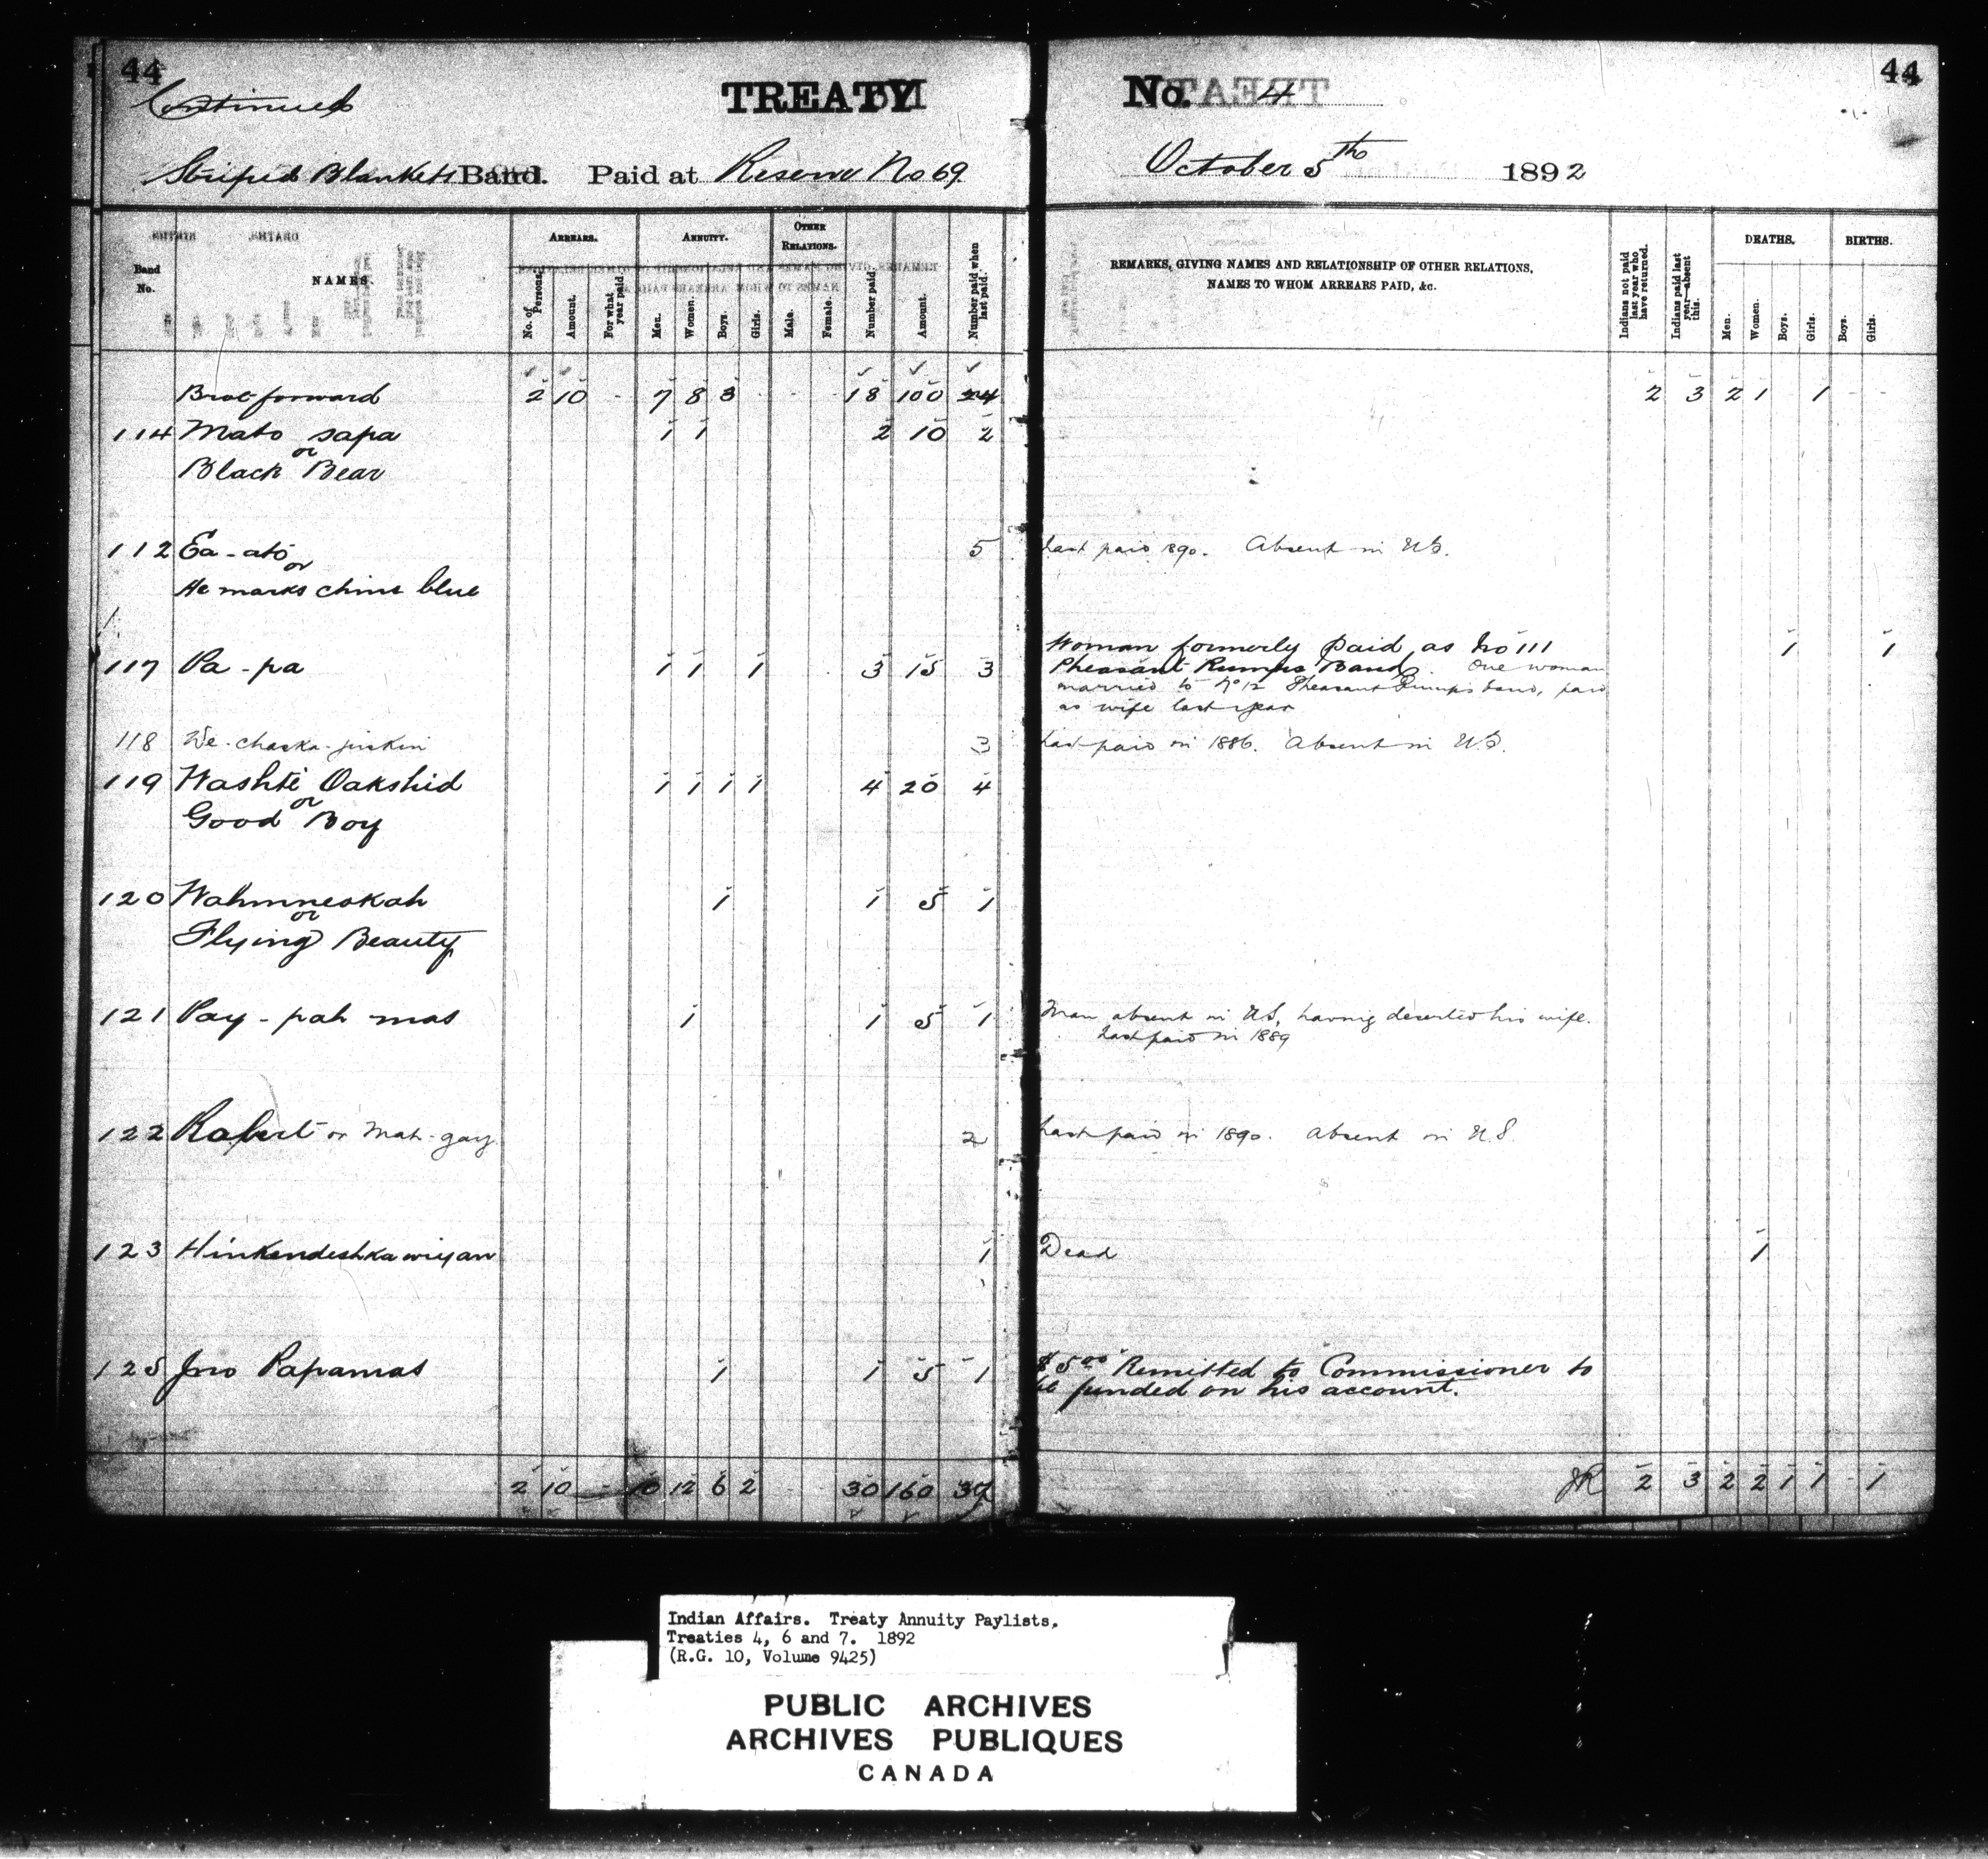 44
Continued
TREATY
No. 4
44
Striped Blankets Band. Paid at Reserve No 69.
October 5th 1892
Band No.
NAMES.
ARREARS.
No. of Persons.
Amount.
For what year paid.
ANNUITY.
Men.
Women.
Boys.
Girls.
OTHER RELATIONS.
Male.
Female.
Number paid.
Amount.
Number paid when last paid.
REMARKS, GIVING NAMES AND RELATIONSHIP OF OTHER RELATIONS,
NAMES TO WHOM ARREARS PAID, &c.
Indians not paid last year who have returned.
Indians paid last year—absent this.
DEATHS.
Men.
Women.
Boys.
Girls.
BIRTHS.
Boys.
Girls.
Brot forward 2 10 - 7 8 3 - - - 18 100 24 2 3 2 1 1 - -
114 Mato sapa 1 1 2 10 2
or
Black Bear
112 Ea-ato 5 Last paid 1890. Absent in U.S.
or
He marks chins blue
117 Pa-pa 1 1 1 3 15 3 Woman formerly paid as No 111 1 1
Pheasant Rumps Band. One woman
married to No 12 Pheasant Rump's band, paid
as wife last year
118 We-chaska- 3 Last paid in 1886. Absent in U.S.
119 Washte Oakshid 1 1 1 1 4 20 4
or
Good Boy
120 Wahmneskah 1 1 5 1
or
Flying Beauty
121 Pay-pah mas 1 1 5 1 Man absent in U.S, having deserted his wife.
Last paid in 1889
122 Robert or Mah-gay 2 Last paid in 1890. Absent in U.S.
123 Hinkendeshkawiyan 1 Dead 1
125 Jno Papamas 1 1 5 1 $5.00 Remitted to Commissioner to
be funded on his account.
2 10 - 10 12 6 2 - - 30 160 37 JR 2 3 2 2 1 1 - 1
Indian Affairs. Treaty Annuity Paylists.
Treaties 4, 6 and 7. 1892
(R.G. 10, Volume 9425)
PUBLIC ARCHIVES
ARCHIVES PUBLIQUES
CANADA